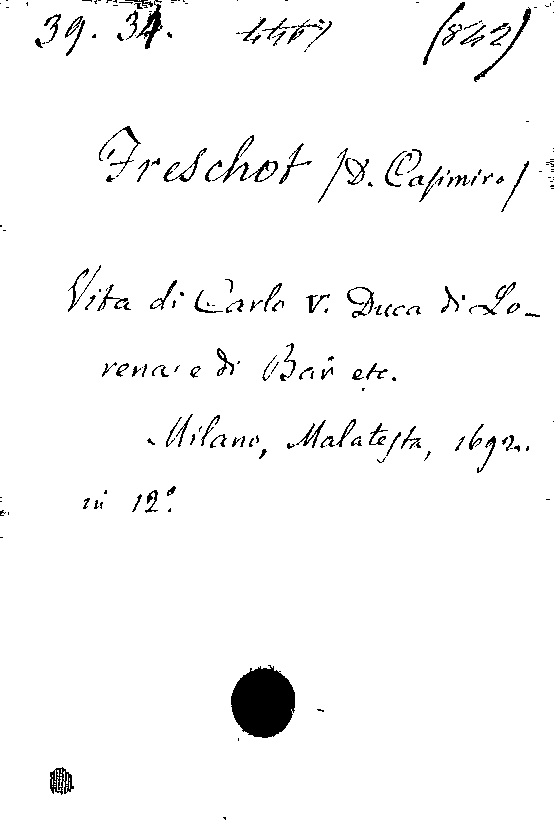 39. 34. (842)
Freschot /D. Casimiro/
Vita di Carlo V. Duca di Lo-
rena e di Bar etc.
Milano, Malatesta, 1692.
in 12°.